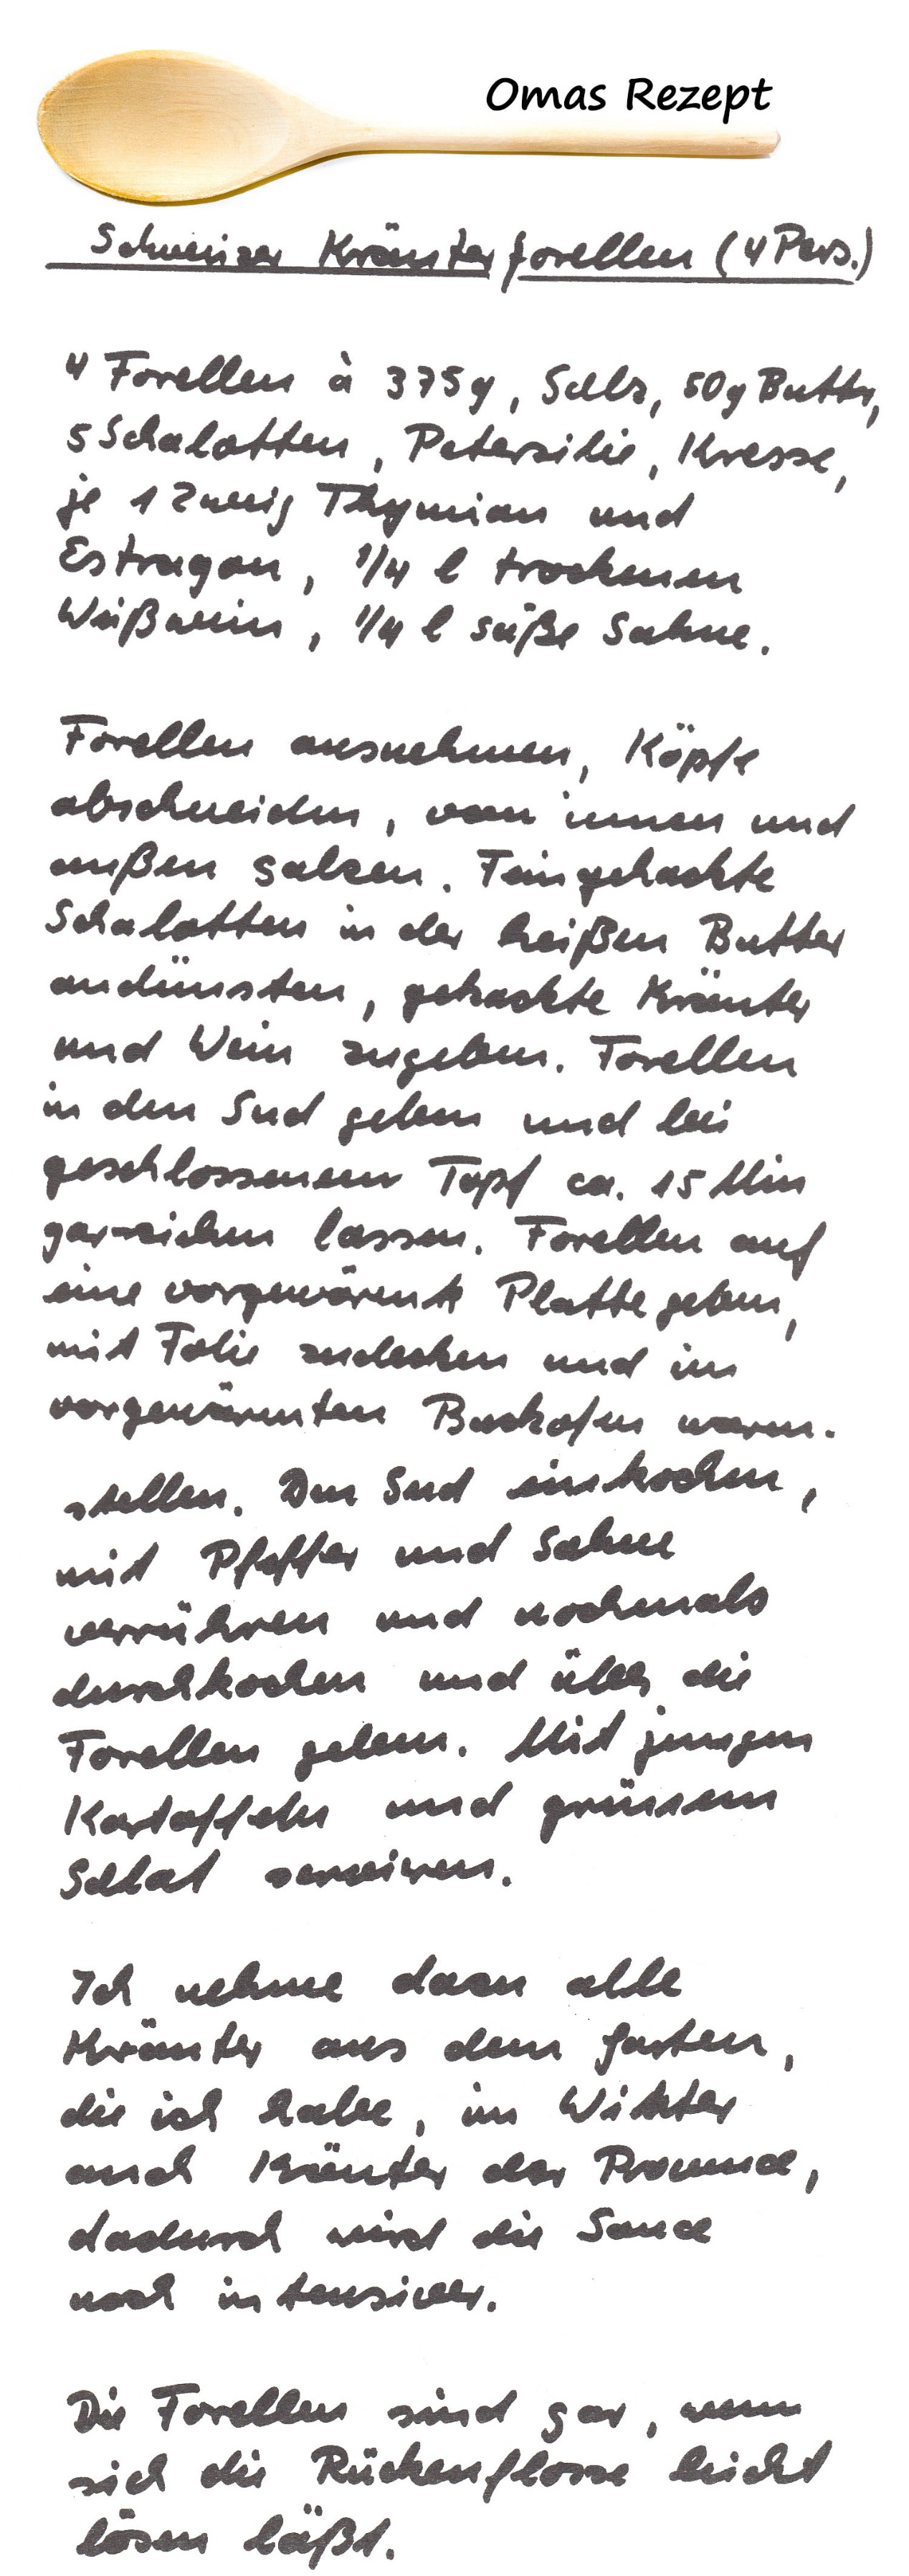 Omas Rezept
Schweizer Kräuterforellen (4 Pers.)
4 Forellen à 375g, Salz, 50g Butter,
5 Schalotten, Petersilie, Kresse,
je 1 Zweig Thymian und
Estragon, 1/4 l trockenen
Weißwein, 1/4 l süße Sahne.
Forellen ausnehmen, Köpfe
abschneiden, von innen und
außen salzen. Feingehackte
Schalotten in der heißen Butter
andünsten, gehackte Kräuter
und Wein zugeben. Forellen
in den Sud geben und bei
geschlossenem Topf ca. 15 Min
garziehen lassen. Forellen auf
eine vorgewärmte Platte geben,
mit Folie zudecken und im
vorgewärmten Backofen warm-
stellen. Den Sud einkochen,
mit Pfeffer und Sahne
verrühren und nochmals
durchkochen und über die
Forellen geben. Mit jungen
Kartoffeln und grünem
Salat servieren.
Ich nehme dazu alle
Kräuter aus dem Garten,
die ich habe, im Winter
auch Kräuter der Provence,
dadurch wird die Sauce
noch intensiver.
Die Forellen sind gar, wenn
sich die Rückenflosse leicht
lösen läßt.